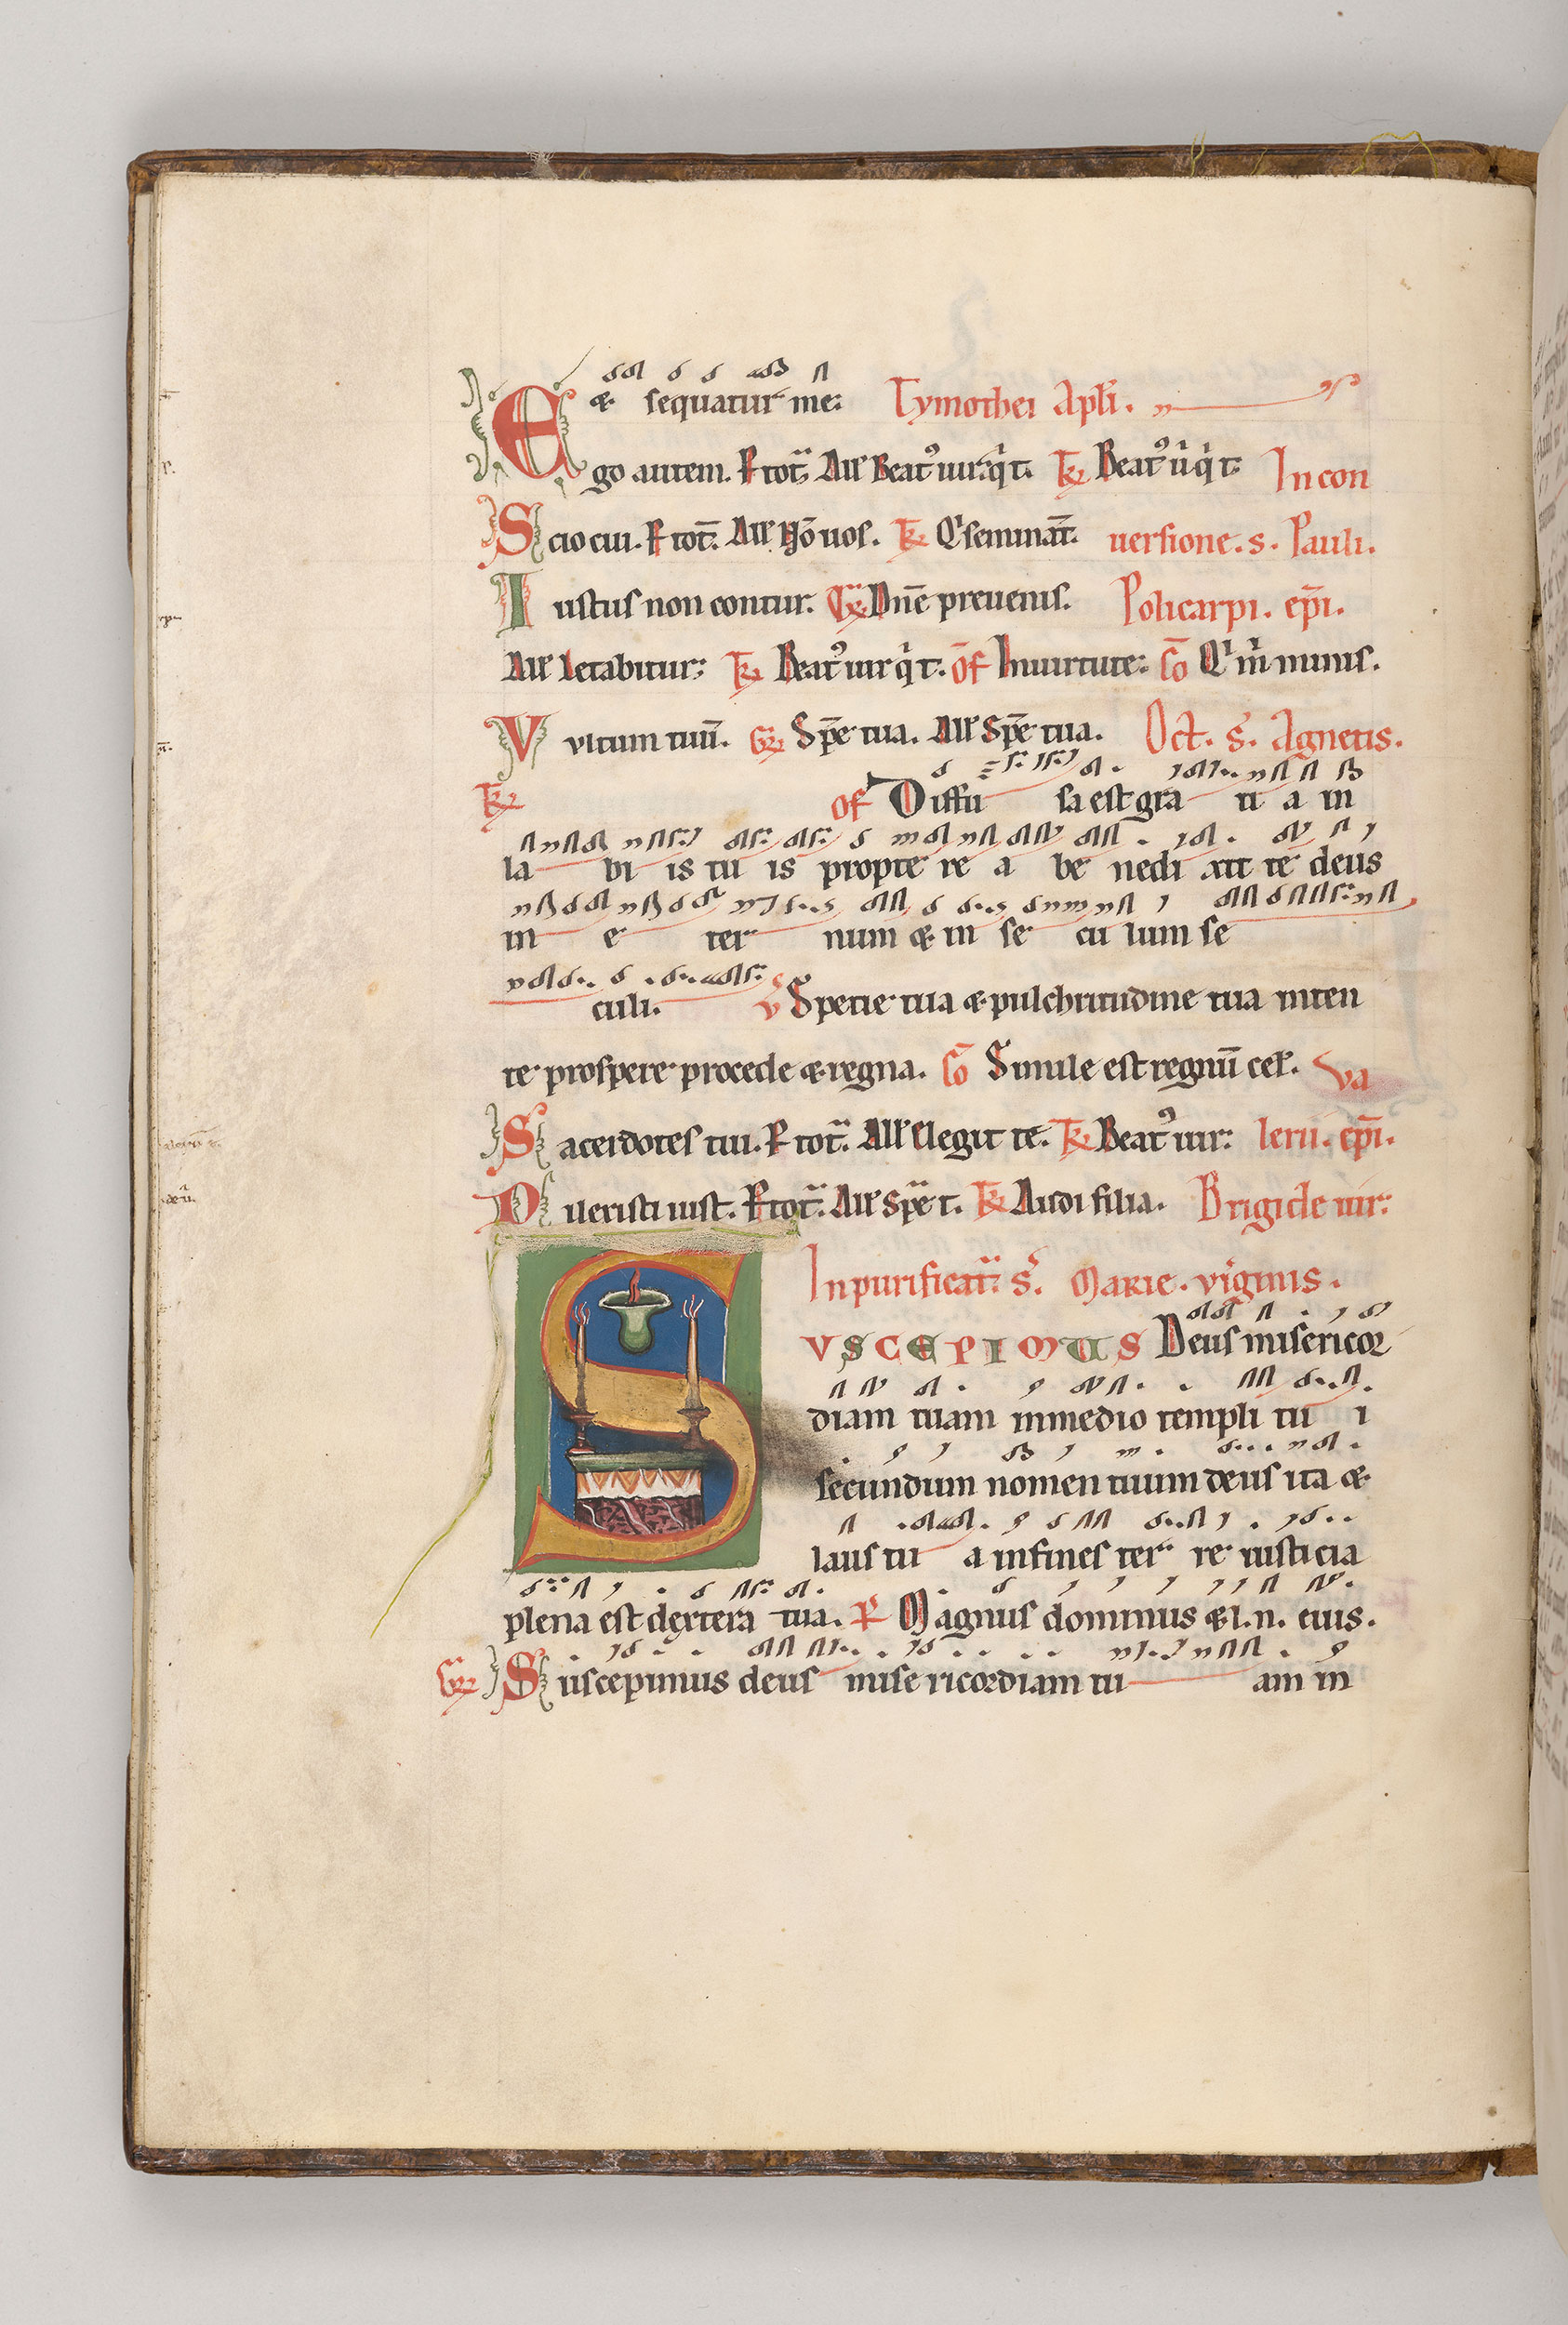 & sequatur me: Tymothei apli.
Ego autem. P tot. All' Beat' uir q̇ t. Tr Beat' u̇ q̇ t. In con
Scio cui. P tot̄. All' Nō uos. Tr Q' seminat. uersione. s. Pauli.
Iustus non contur. Tr Dn̄e preuenis. Policarpi. ep̄i.
All' letabitur: Tr Beat' uir q̇ t. Of Inuirtute: Co Q' m̄ minis.
Vvltum tuū. Gr Sp̄e tua. All' Sp̄e tua. Oct. s. Agnetis.
Tr Of Diffu sa est gra ti a in
la bi is tu is propte re a be nedi xit te deus
in e ter num & in se cu lum se
culi. v Specie tua & pulchritudine tua inten
te prospere procede & regna. Co Simile est regnū cel'. Va
Sacerdotes tui. P tot. All' Elegit te. Tr Beat' uir: lerii. ep̄i.
Dilexisti iust. P tot. All' Spē t. Tr Audi filia. Brigide uir:
Inpurificat. s. Marie. virginis.
SVSCEPIMUS Deus misericor
diam tuam inmedio templi tu i
secundum nomen tuum deus ita &
laus tu a infines ter re iusticia
plena est dextera tua. P Magnus dominus & l. n. eius.
Gr Suscepimus deus mise ricordiam tu am in